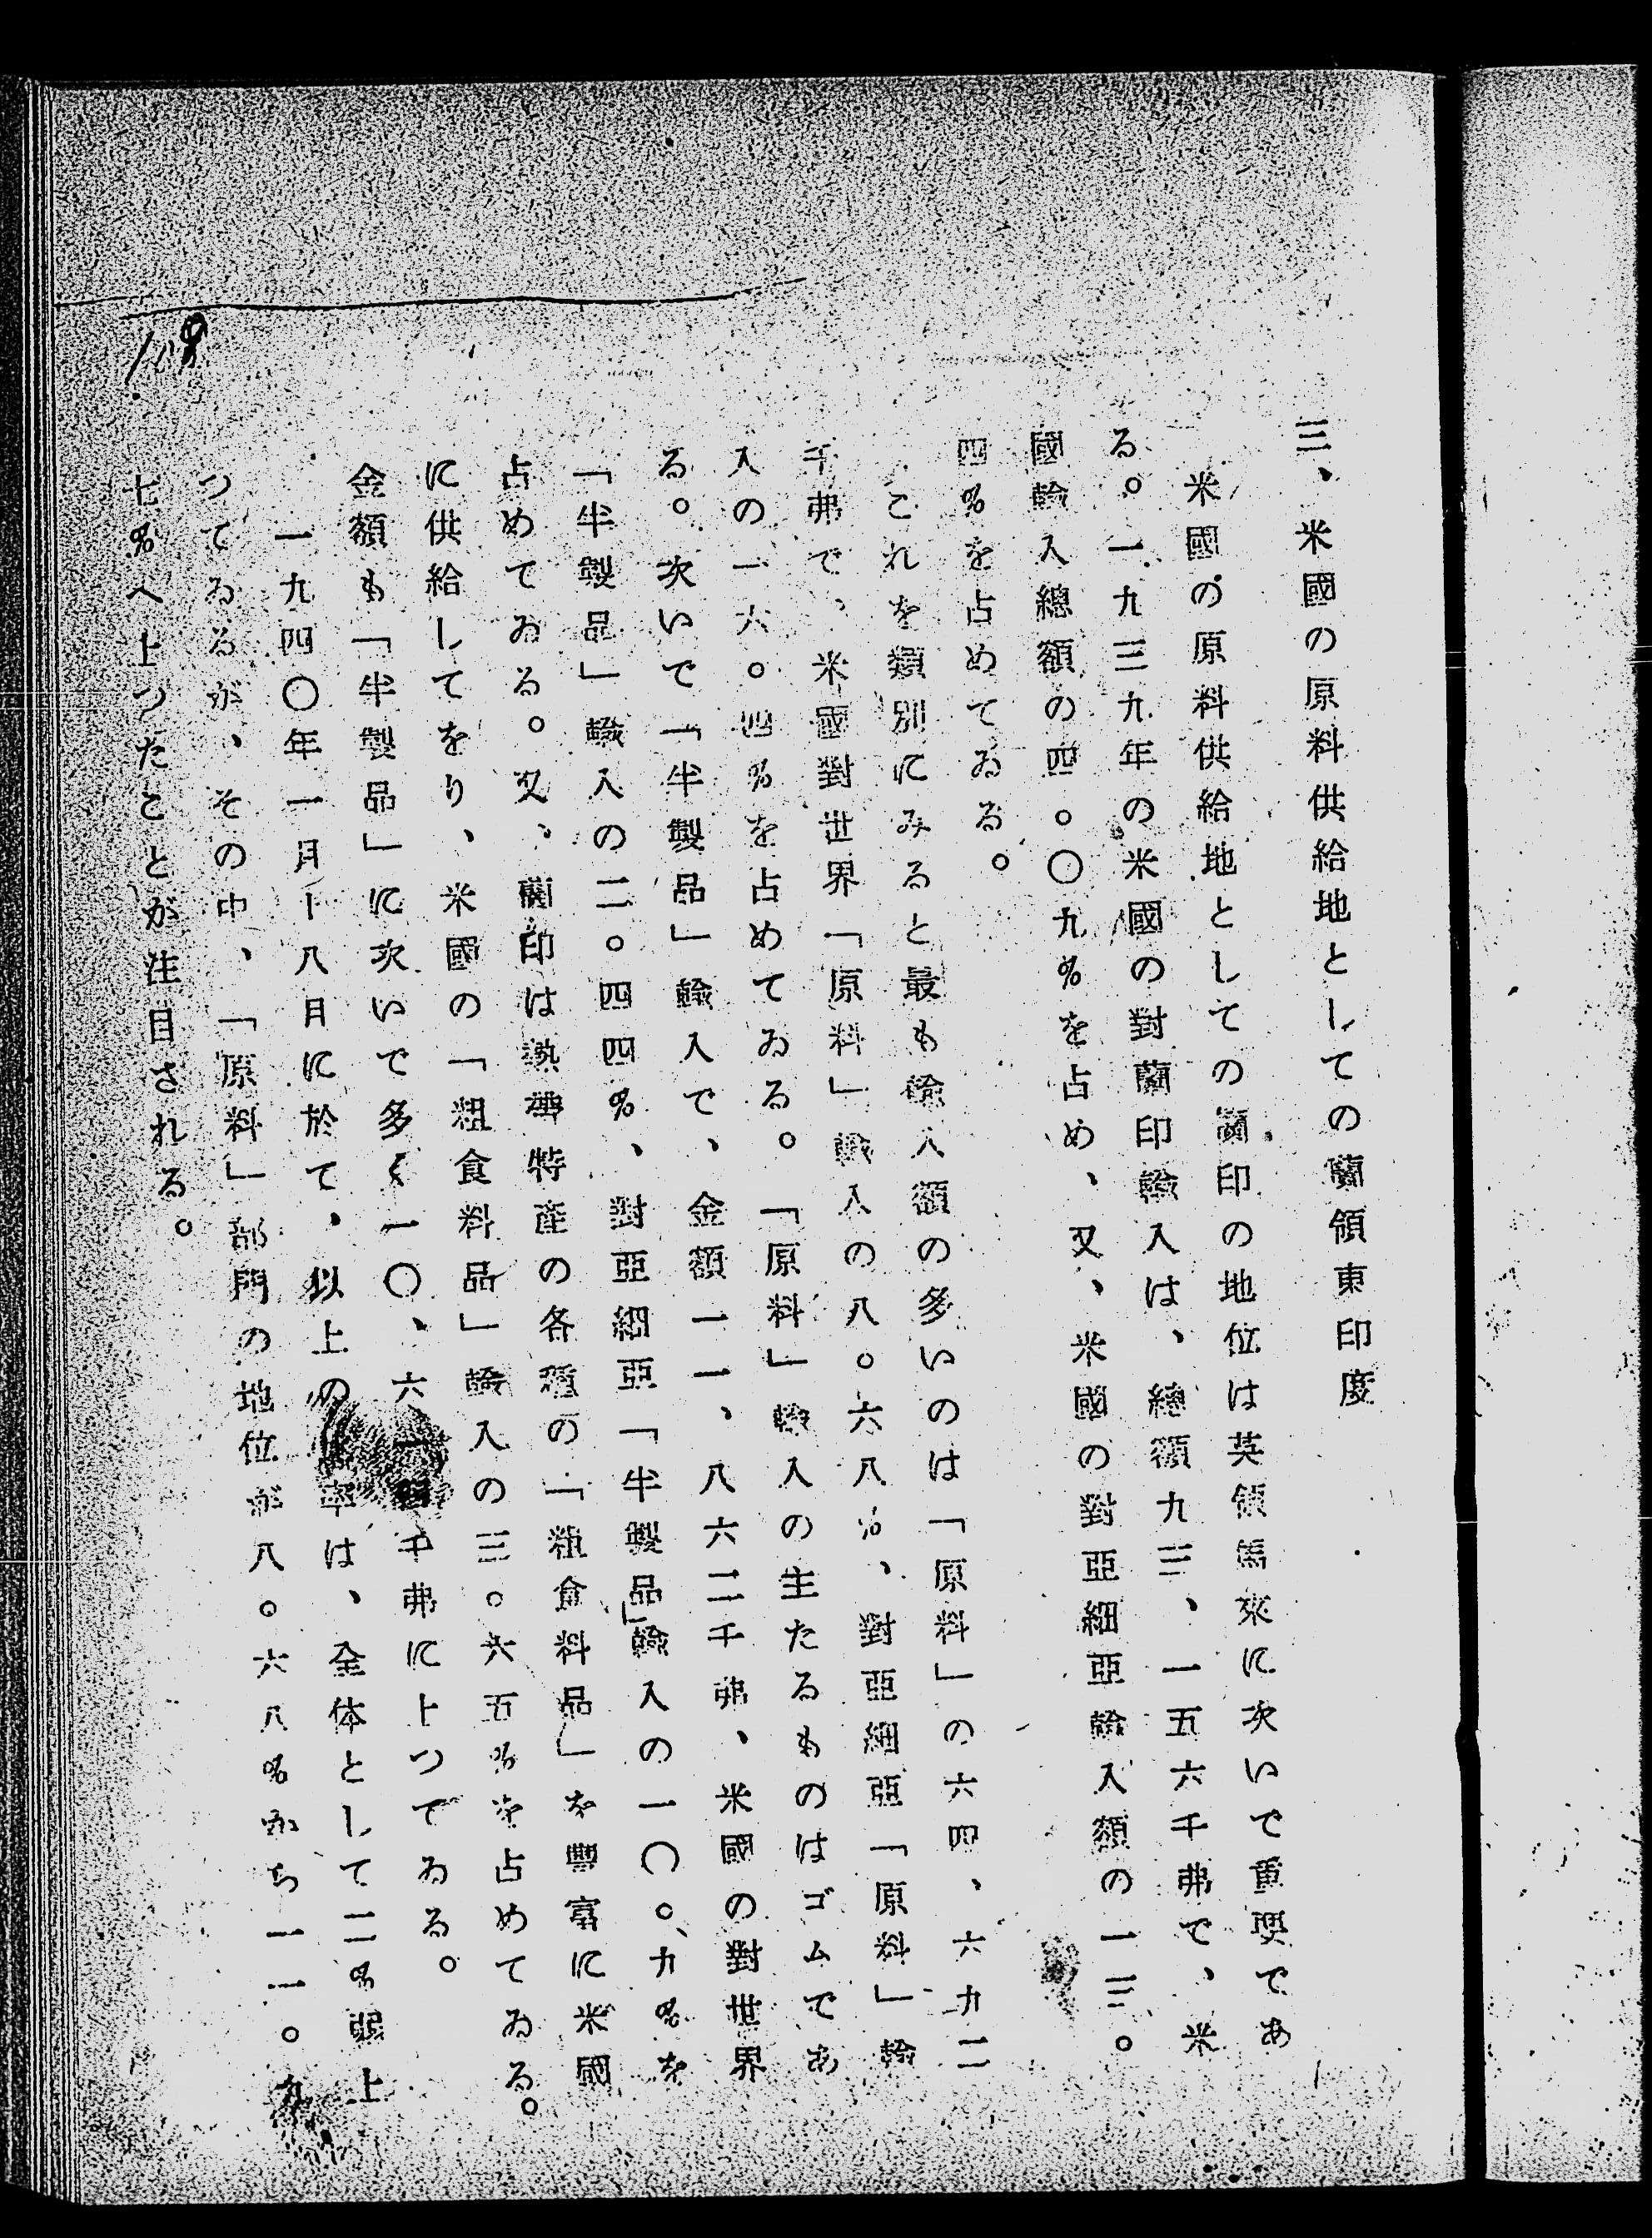 三、米國の原料供給地としての蘭領東印度
米國の原料供給地としての蘭印の地位は英領馬來に次いで重要であ
る。一九三九年の米國の對蘭印輸入は、總額九三、一五六千弗で、米
國輸入總額の四。〇九%を占め、又、米國の對亞細亞輸入額の一三。
四%を占めてゐる。
これを類別にみると最も輸入額の多いのは「原料」の六四、六九二
千弗で、米國對世界「原料」輸入の八。六八%、對亞細亞「原料」輸
入の一六。四%を占めてゐる。「原料」輸入の主たるものはゴムであ
る。次いで「半製品」輸入で、金額一一、八六二千弗、米國の對世界
「半製品」輸入の二。四四%、對亞細亞「半製品」輸入の一〇。九%を
占めてゐる。又、蘭印は熱帶特産の各種の「粗食料品」を豐富に米國
に供給してをり、米國の「粗食料品」輸入の三。六五%を占めてゐる。
金額も「半製品」に次いで多く一〇、六一 千弗に上つてゐる。
一九四〇年一月ー八月に於て、以上の 率は、全体として二%弱上
つてゐるが、その中、「原料」部門の地位が八。六八%から一一。九
七%へ上つたことが注目される。